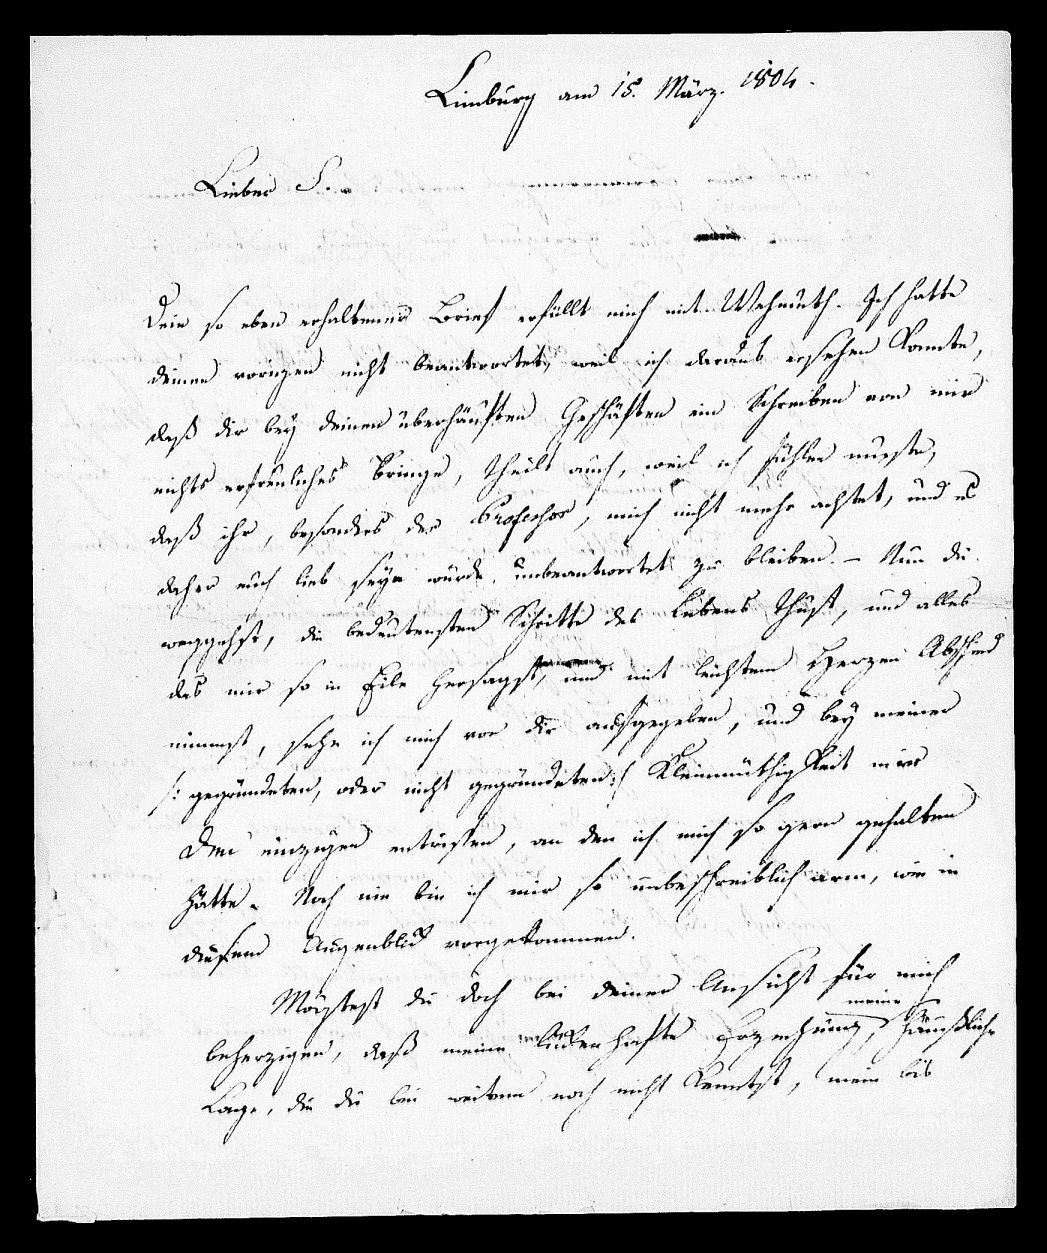 Limburg am 15. März. 1804.
Lieber S.
Dein so eben erhaltener Brief erfüllt mich mit Wehmuth. Ich hatte
deinen vorigen nicht beantwortet, weil ich daraus ersehen konnte,
daß dir bey deinen überhäuften Geschäften ein Schreiben von mir
nichts erfreuliches bringe, theils auch, weil ich fühlen mußte,
daß ihr, besonders der Professor, mich nicht mehr achtet, und es
daher euch lieb seyn würde, unbeantwortet zu bleiben. – Nun du
weggehst, die bedeutensten Schritte des Lebens thust, und alles
das mir so in Eile hersagst, und mit leichtem Herzen Abschied
nimmst, sehe ich mich von dir aufgegeben, und bey meiner
/: gegründeten, oder nicht gegründeten :/ Kleinmüthigkeit mir
den einzigen entrissen, an den ich mich so gern gehalten
hätte. Noch nie bin ich mir so unbeschreiblich arm, wie in
diesem Augenblick vorgekommen.
Mögtest du doch bei deiner Ansicht für mich
meine
beherzigen, daß meine lückenhafte Erziehung, häußliche
Lage, die du bei weitem noch nicht kenntst, mein bis